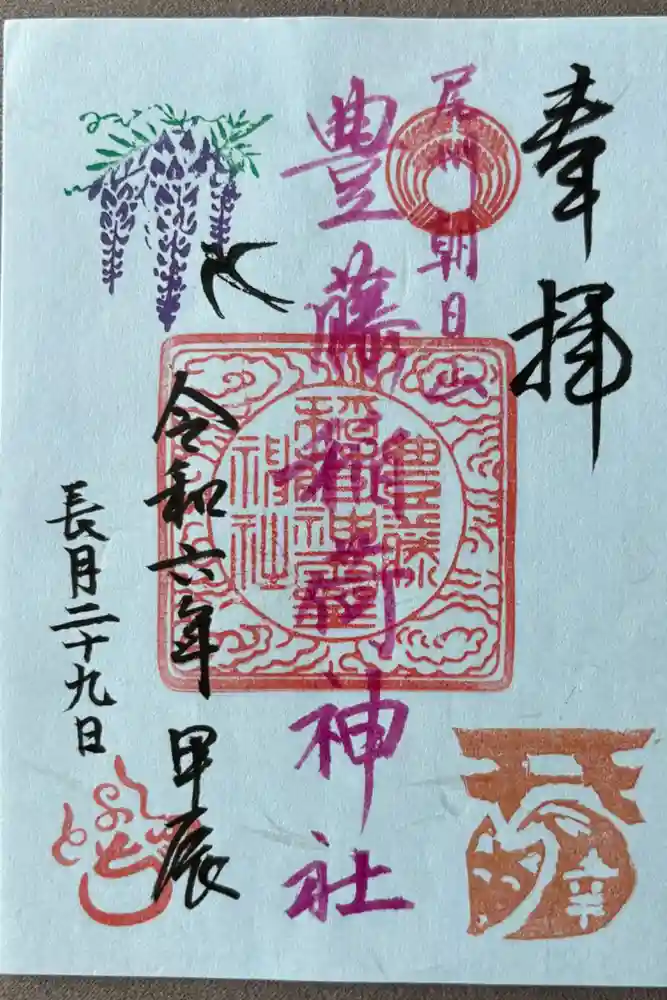 奉拝
尾州朝日山
豊藤稲荷神社
令和六年 甲辰
長月二十九日